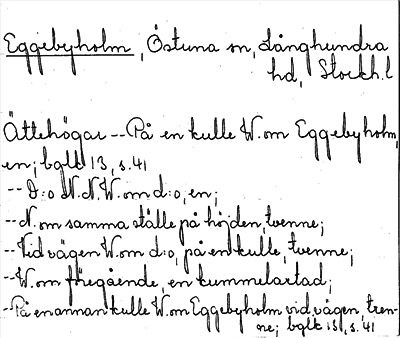 Eggebyholm, Östuna sn, Långhundra
hd, Stockh.l
Ättehögar -- På en kulle W. om Eggebyholm,
en; bglt 13, s. 41
-- D:o N.N.W. om d:o, en;
-- N. om samma ställe på höjden, tvenne;
-- Vid vägen W. om d:o, på en kulle, tvenne;
-- W. om föregående, en kummelartad;
-- På en annan kulle W. om Eggebyholm vid vägen, tren-
ne; bglt 13, s. 41